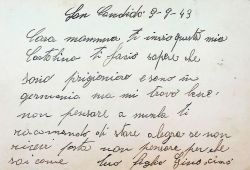 San Candido 9-9-43
Cara mamma ti invio questa mia
Cartolina ti faccio sapere che
sono prigioniero e sono in
germania ma mi trovo bene
non pensare a nulla ti
raccomando di stare alegra se non
ricevi posta non pensare perche
sai come tuo figlio